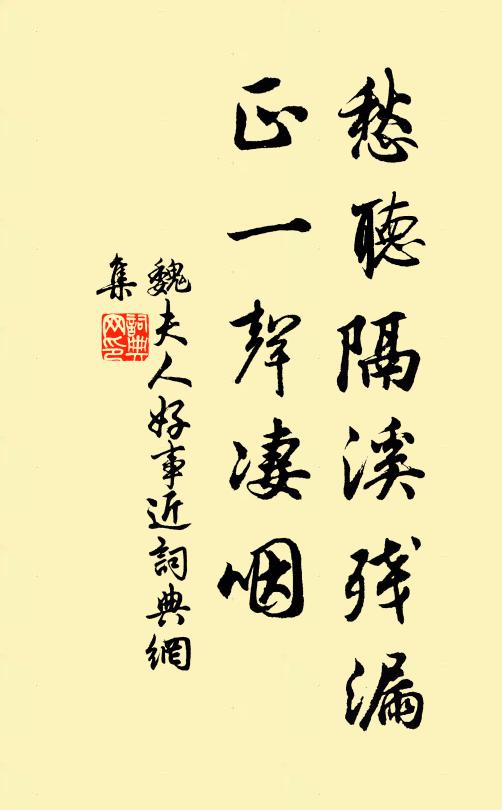 愁聽隔溪殘漏
正一聲凄咽
魏夫人好事近詞典網
集
詞典網印